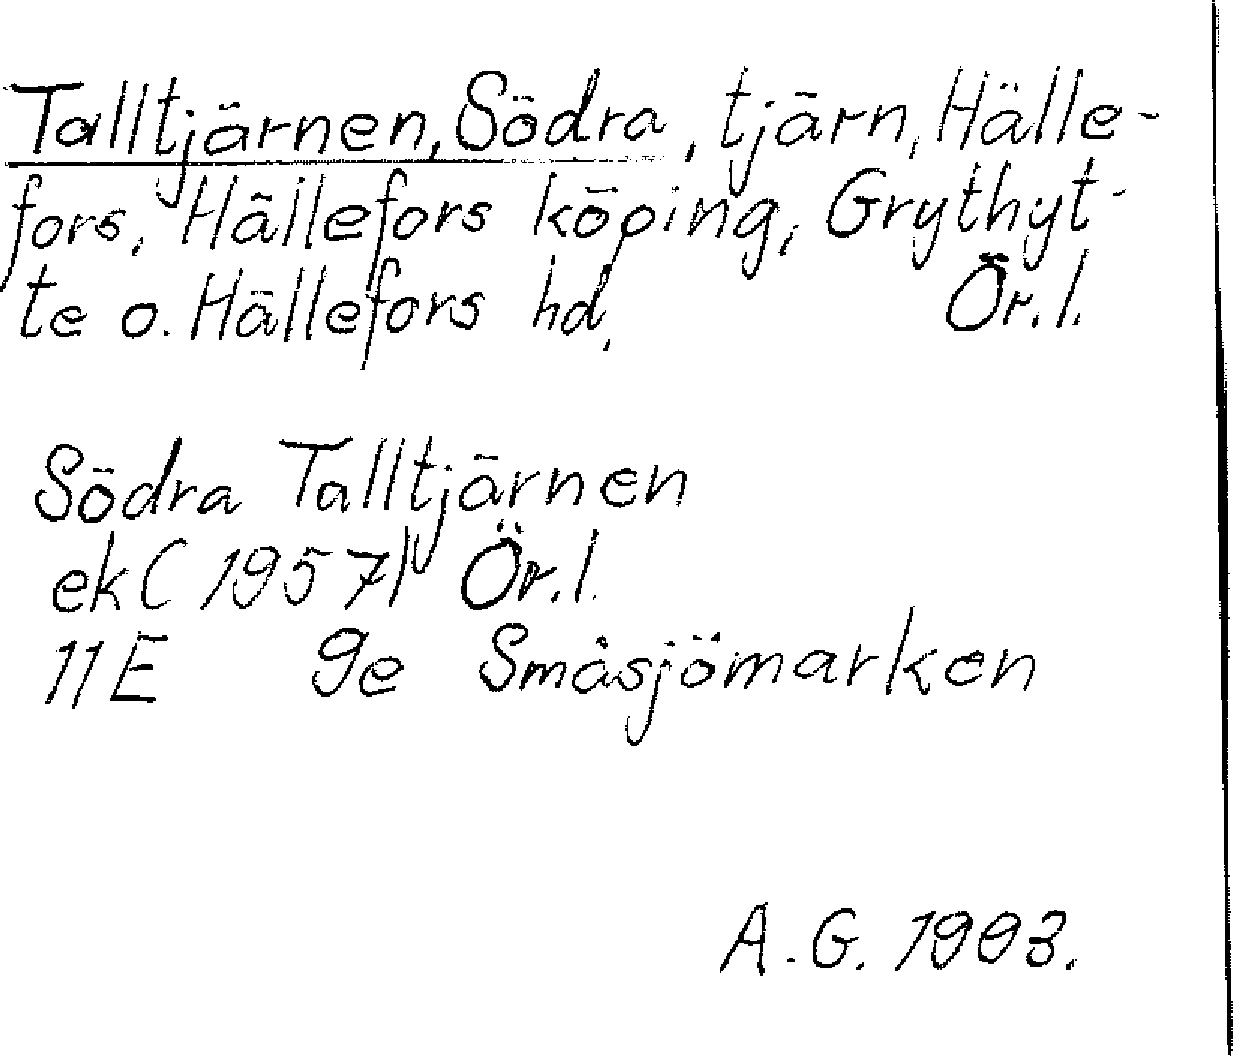 Talltjärnen, Södra, tjärn, Hälle-
fors, Hällefors köping, Grythyt-
te o. Hällefors hd. Ör.l.
Södra Talltjärnen
ek (1957) Ör.l.
11E 9e Småsjömarken
A.G. 1993.